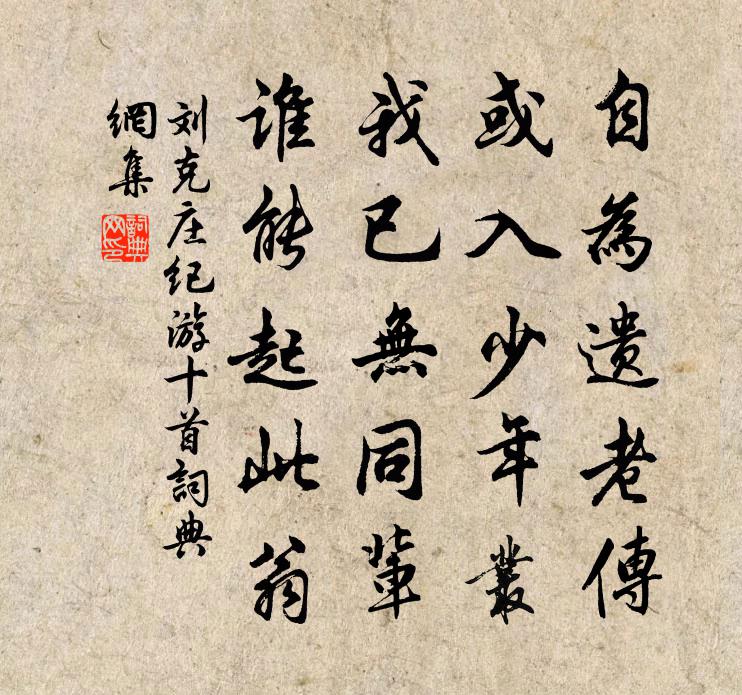 自為遗老傳
或入少年叢
我已無同輩
谁能起此翁
刘克庄纪游十首詞典
網集
詞典
网印